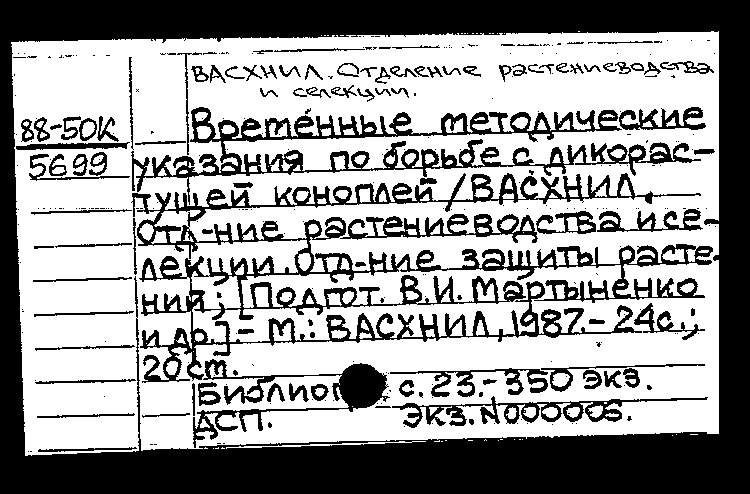 ВАСХНИЛ. Отделение растениеводства
и селекции.
88-50К
5699
Временные методические
указания по борьбе с дикорас-
тущей коноплей /ВАСХНИЛ.
Отд-ние растениеводства и се-
лекции. Отд-ние защиты расте-
ний; [Подгот. В.И. Мартыненко
и др.].- М.: ВАСХНИЛ, 1987.- 24с.;
20 см.
с. 23.- 350 экз.
ДСП. Экз. N000006.